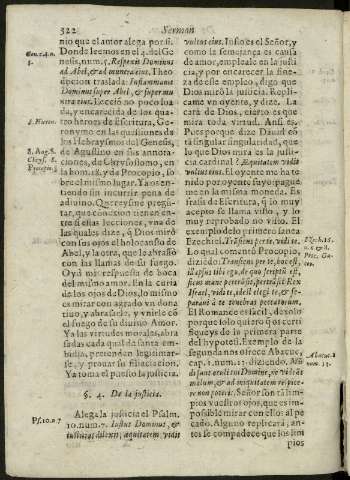 322 Sermon
nio que el amor alega por si.
Donde leemos en el 2. del Ge
nesis, num. 5. Respexit Dominus
ad Abel, & ad munera eius. Theo
docion traslada: Inflammauit
Dominus super Abel, & super mu
nera eius. Leccion no poco loa
da, y encarecida de los qua-
tro heroes de Escritura, Ge-
ronymo en las questiones da
los Hebraysmos del Genesis,
de Agustino en sus annota-
ciones, de Chrysostomo, en
la hom. 18. y de Procopio, so-
bre el mismo lugar. Yaos en-
tiendo sin incurrir pena de
adiuino. Querey sme pregũ-
tar, que conexion tienen en-
tre si estas lecciones, vna de
las quales dize, q̃ Dios mirò
con sus ojos el holocausto de
Abel, y la otra, que la abrasò
con las llamas de su fuego.
Oyd mi respuesta de boca
del mismo amor. En la curia
de los ojos de Dios, lo mismo
es mirar con agrado vn dona
tiuo, y abrasarle, y vnirle cõ
el fuego de su diuino Amor.
Ya las virtudes morales, abra
sadas cada qual de santa em-
bidia, pretenden legitimar-
se, y prouar su filiacion.
Ya toma el puesto la justicia.
§. 4. De la justicia.
Alega la justicia el Psalm.
10. num. 7. Iustus Dominus, &
iustitias dilexit, æquitatem vidit
Gen. c. 4. n.
S. Hieron.
S. Aug. S.
Chrys. S.
Procop. ;
Ps. 10. n. 7
vultus eius. Justo es el Señor, y
como la semejança es causa
de amor, empleale en la justi
cia, y por encarecer la fine-
za de este empleo, digo que
Dios mirò la justicia. Repli-
came vn oyente, y dize. La
cara de Dios, cierto es que
mira toda virtud. Ansi es.
Pues porque dize Dauid cõ
tã singular singularidad, que
lo que Dios mira es la justi-
cia cardinal? Æquitatem vidit
vultus eius. El oyente me ha te
nido por oyente suyo pague
me en la misma moneda. Es
frasis de Escritura, q̃ lo muy
acepto se llama visto, y lo
muy reprobado no visto. El
exemplo de lo primero sanea
Ezechiel. Transiens per te, vidi te.
Lo qual comentò Procopio,
diziẽdo: Transiens per te, hoc est,
illapsus tibi ego, de quo scriptũ est,
sicut mane pertrãsijt, pertrãsijt Rex
Israel, vidi te, idest elegi te, & se-
paraui à te tenebras peccatorum.
El Romance es facil, deuolo
porque solo quiero q̃ os certi
fiqueys de la primera parte
del hypoteti. Exemplo de la
segunda nos ofrece Abacuc,
cap. 1. num. 13. diziendo. Mũ
di sunt oculi tui Domine, ne videãs
malum, & ad iniquitatem respice-
re non poteris. Señor son tã lim-
pios vuestros ojos, que es im-
posible mirar con ellos al pe
cado. Alguno replicarà, an-
tes se compadece que los lim
pios
Ezech. 16.
Proc. Ga-
Abacuc. 1
num. 13.